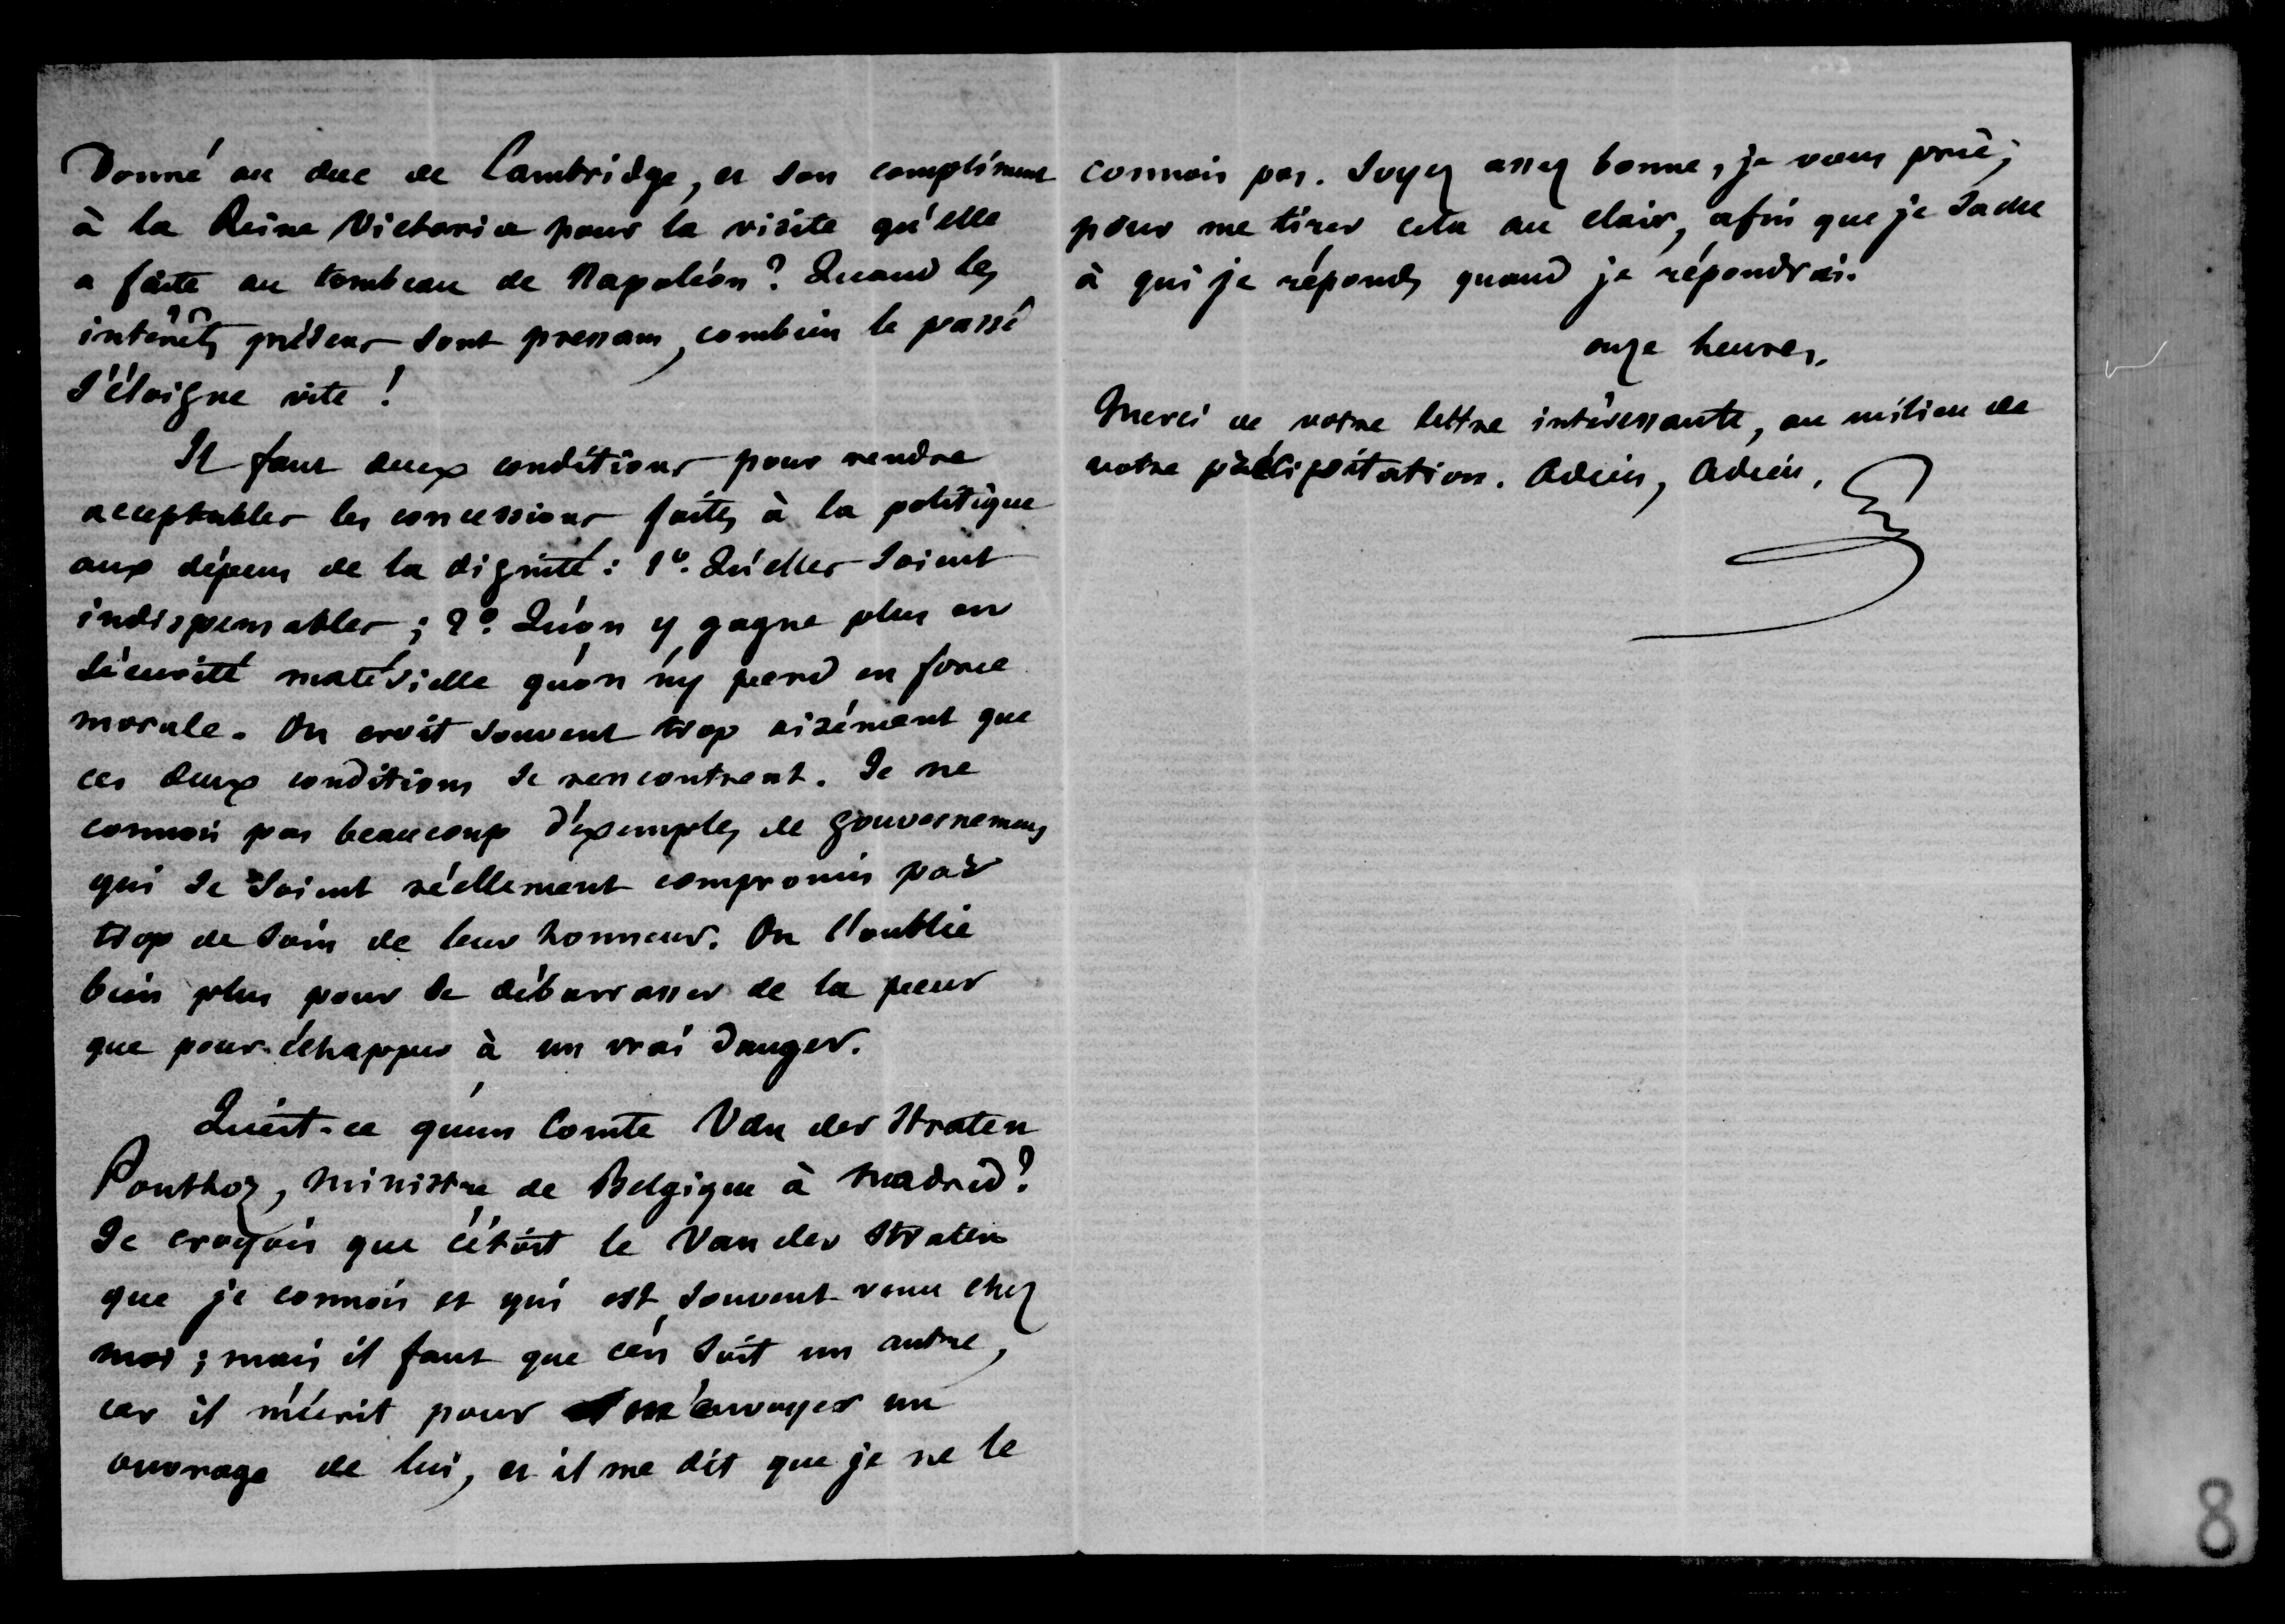 Donné au duc de Cambridge, et son compliment
à la Reine Victoria pour la visite qu'elle
a faite au tombeau de Napoléon ? Quand les
intérêts présens sont pressans, combien le passé
s'éloigne vite !
Il faut deux conditions pour rendre
acceptables les concessions faites à la politique
aux dépens de la dignité : 1º. Qu'elles soient
indispensables ; 2º. Qu'on y gagne plus en
sécurité matérielle qu'on n'y perd en force
morale. On croit souvent trop aisément que
ces deux conditions se rencontrent. Je ne
connois pas beaucoup d'exemples de gouvernemens
qui se soient réellement compromis par
trop de soin de leur honneur. On l'oublie
bien plus pour se débarrasser de la peur
que pour échapper à un vrai danger.
Qu'est-ce qu'un Comte Van der Straten
Ponthoz, ministre de Belgique à Madrid ?
Je croyois que c'étoit le Van der Straten
que je connois et qui est souvent venu chez
moi ; mais il faut que c'en soit un autre,
car il m'écrit pour m'envoyer un
ouvrage de lui, et il me dit que je ne le
connois pas. Soyez assez bonne, je vous prie,
pour me tirer cela au clair, afin que je sache
à qui je réponds quand je répondrai.
onze heures.
Merci de votre lettre intéressante, au milieu de
votre précipitation. Adieu, Adieu.
8